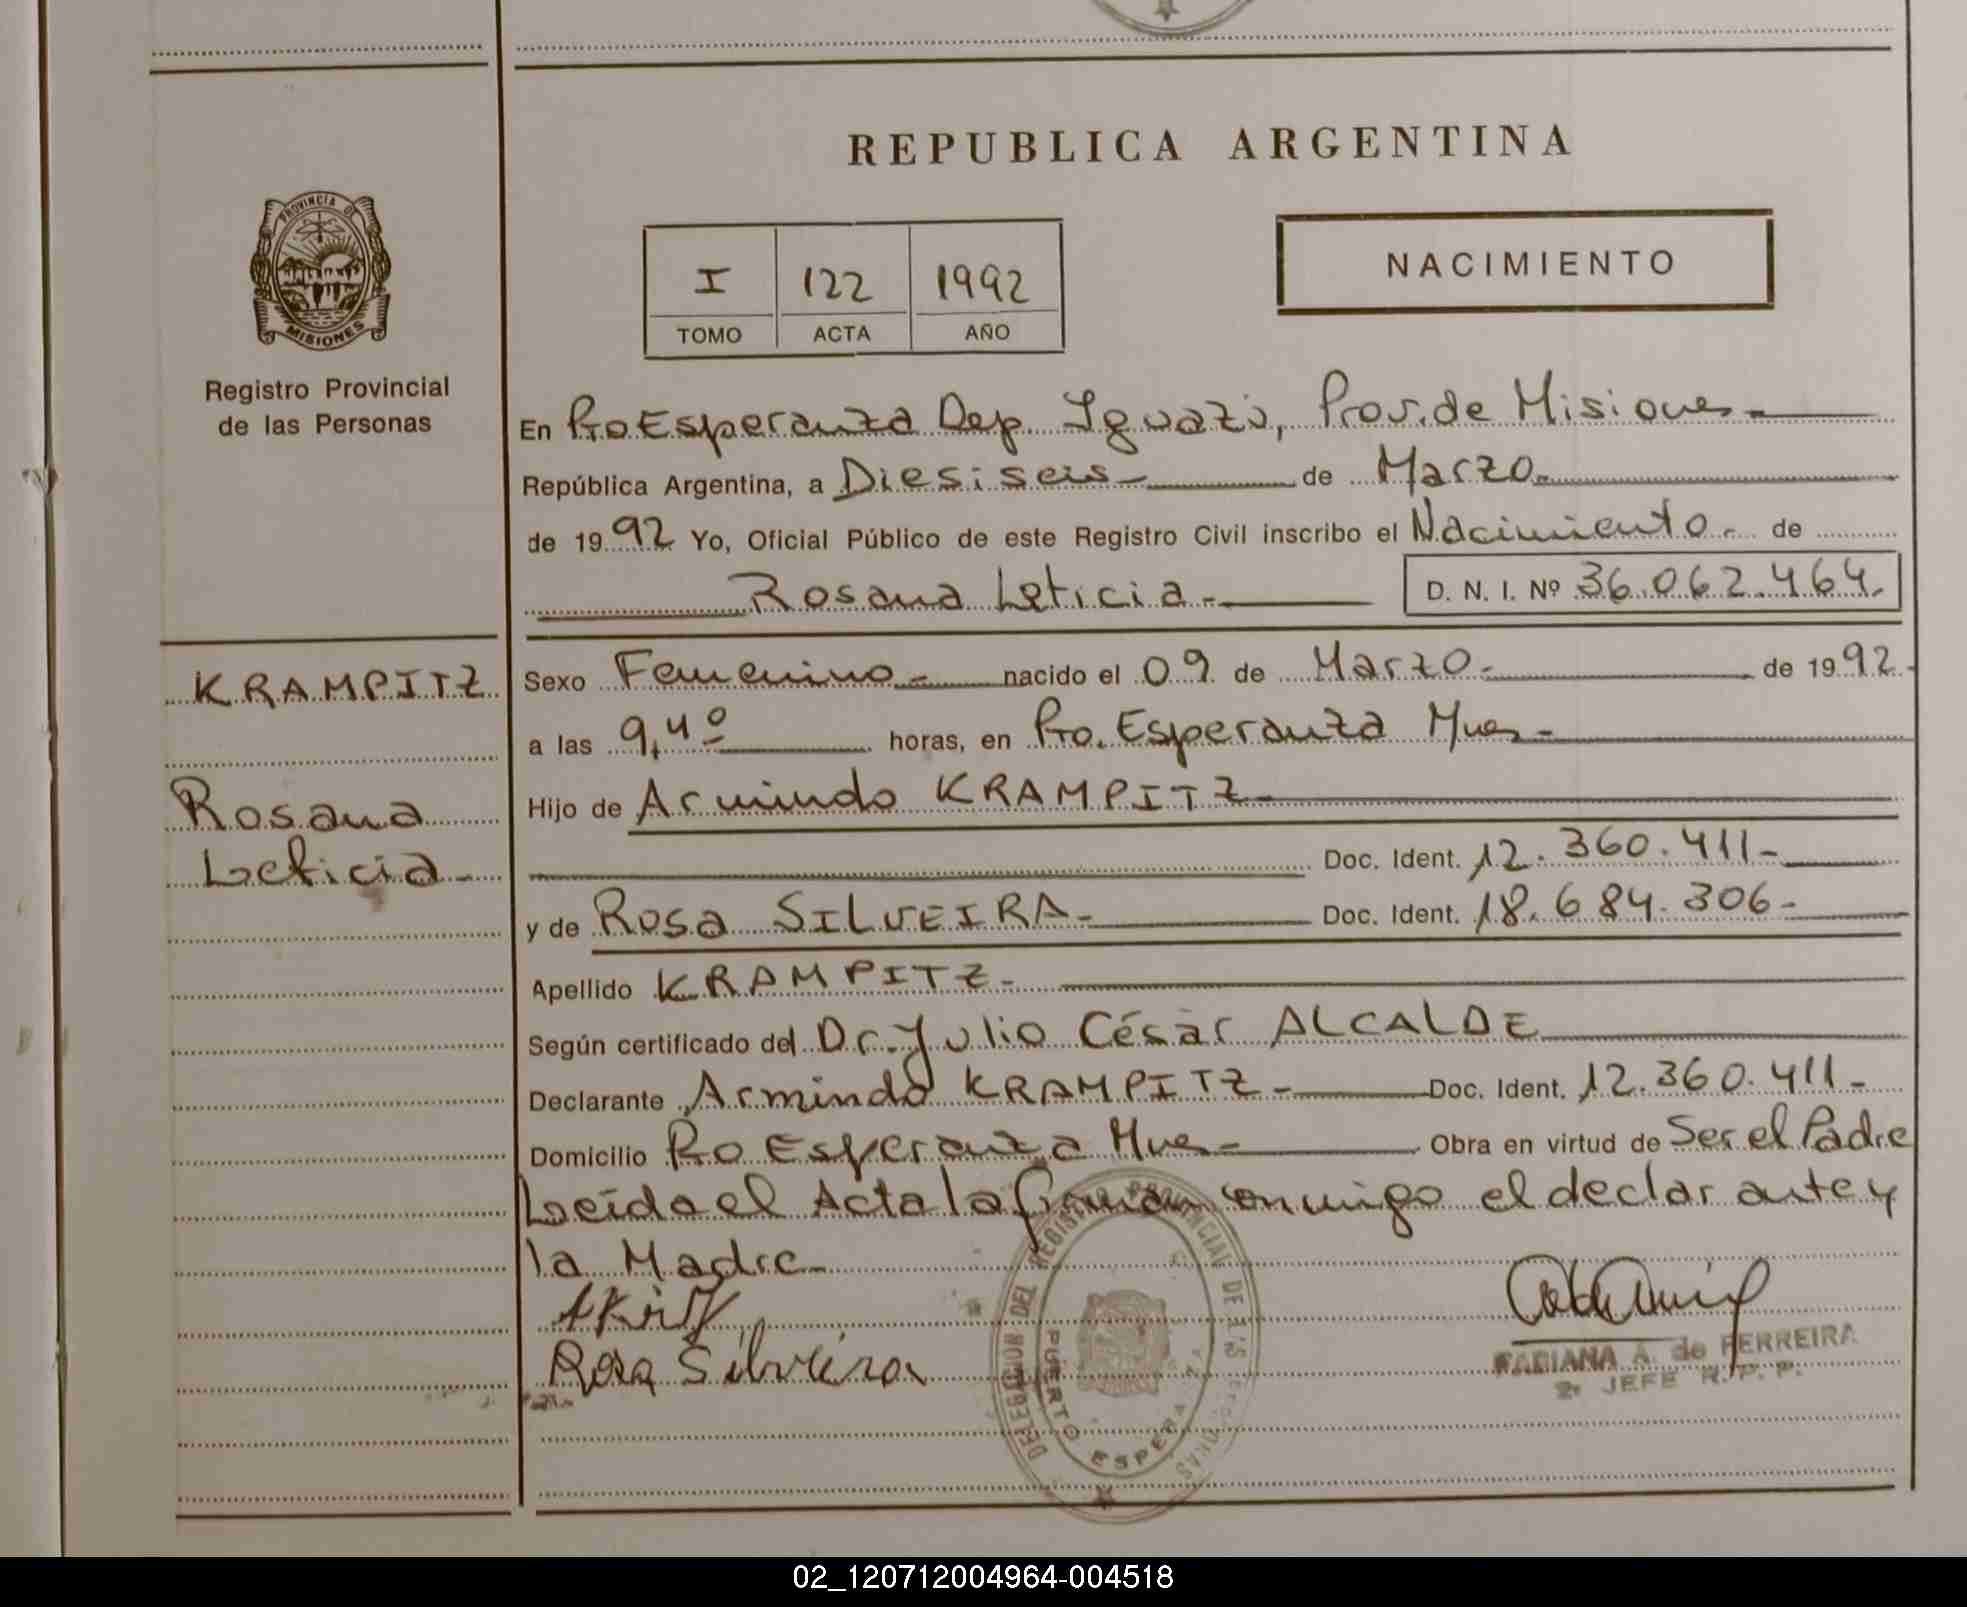 REPUBLICA ARGENTINA
PROVINCIA DE
MISIONES
Registro Provincial
de las Personas
I 122 1992
TOMO ACTA AÑO
NACIMIENTO
En Pto Esperanza Dep. Iguazú, Prov. de Misiones-
República Argentina, a Diesiseis- de Marzo-
de 1992 Yo, Oficial Público de este Registro Civil inscribo el Nacimiento- de
Rosana Leticia- D. N. I. Nº 36.062.464.
KRAMPITZ
Rosana
Leticia-
Sexo Femenino- nacido el 09 de Marzo- de 1992-
a las 9,4º horas, en Pto. Esperanza Mnes-
Hijo de Armindo KRAMPITZ-
Doc. Ident. 12.360.411-
y de Rosa SILVEIRA- Doc. Ident. 18.684.306-
Apellido KRAMPITZ-
Según certificado del Dr. Julio César ALCALDE
Declarante Armindo KRAMPITZ- Doc. Ident. 12.360.411-
Domicilio Pto Esperanza Mnes- Obra en virtud de Ser el Padre
Leída el Acta la firman conmigo el declarante y
la Madre-
Rosa Silveira
DELEGACION DEL REGISTRO PROVINCIAL DE LAS PERSONAS
PUERTO ESPERANZA
FABIANA A. de FERREIRA
2º JEFE R. P. P.
02_120712004964-004518